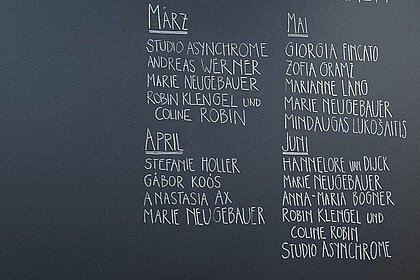 MÄRZ
STUDIO ASYNCHROME
ANDREAS WERNER
MARIE NEUGEBAUER
ROBIN KLENGEL UND
COLINE ROBIN
APRIL
STEFANIE HOLLER
GÁBOR KOÓS
ANASTASIA AX
MARIE NEUGEBAUER
MAI
GIORGIA FINCATO
ZOFIA GRAMZ
MARIANNE LANG
MARIE NEUGEBAUER
MINDAUGAS LUKOŠAITIS
JUNI
HANNELORE VAN DIJCK
MARIE NEUGEBAUER
ANNA-MARIA BOGNER
ROBIN KLENGEL UND
COLINE ROBIN
STUDIO ASYNCHROME